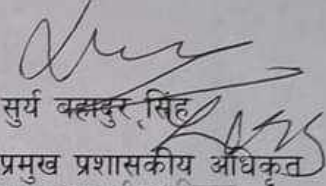 सुर्य बहादुर सिंह
प्रमुख प्रशासकीय अधिकृत